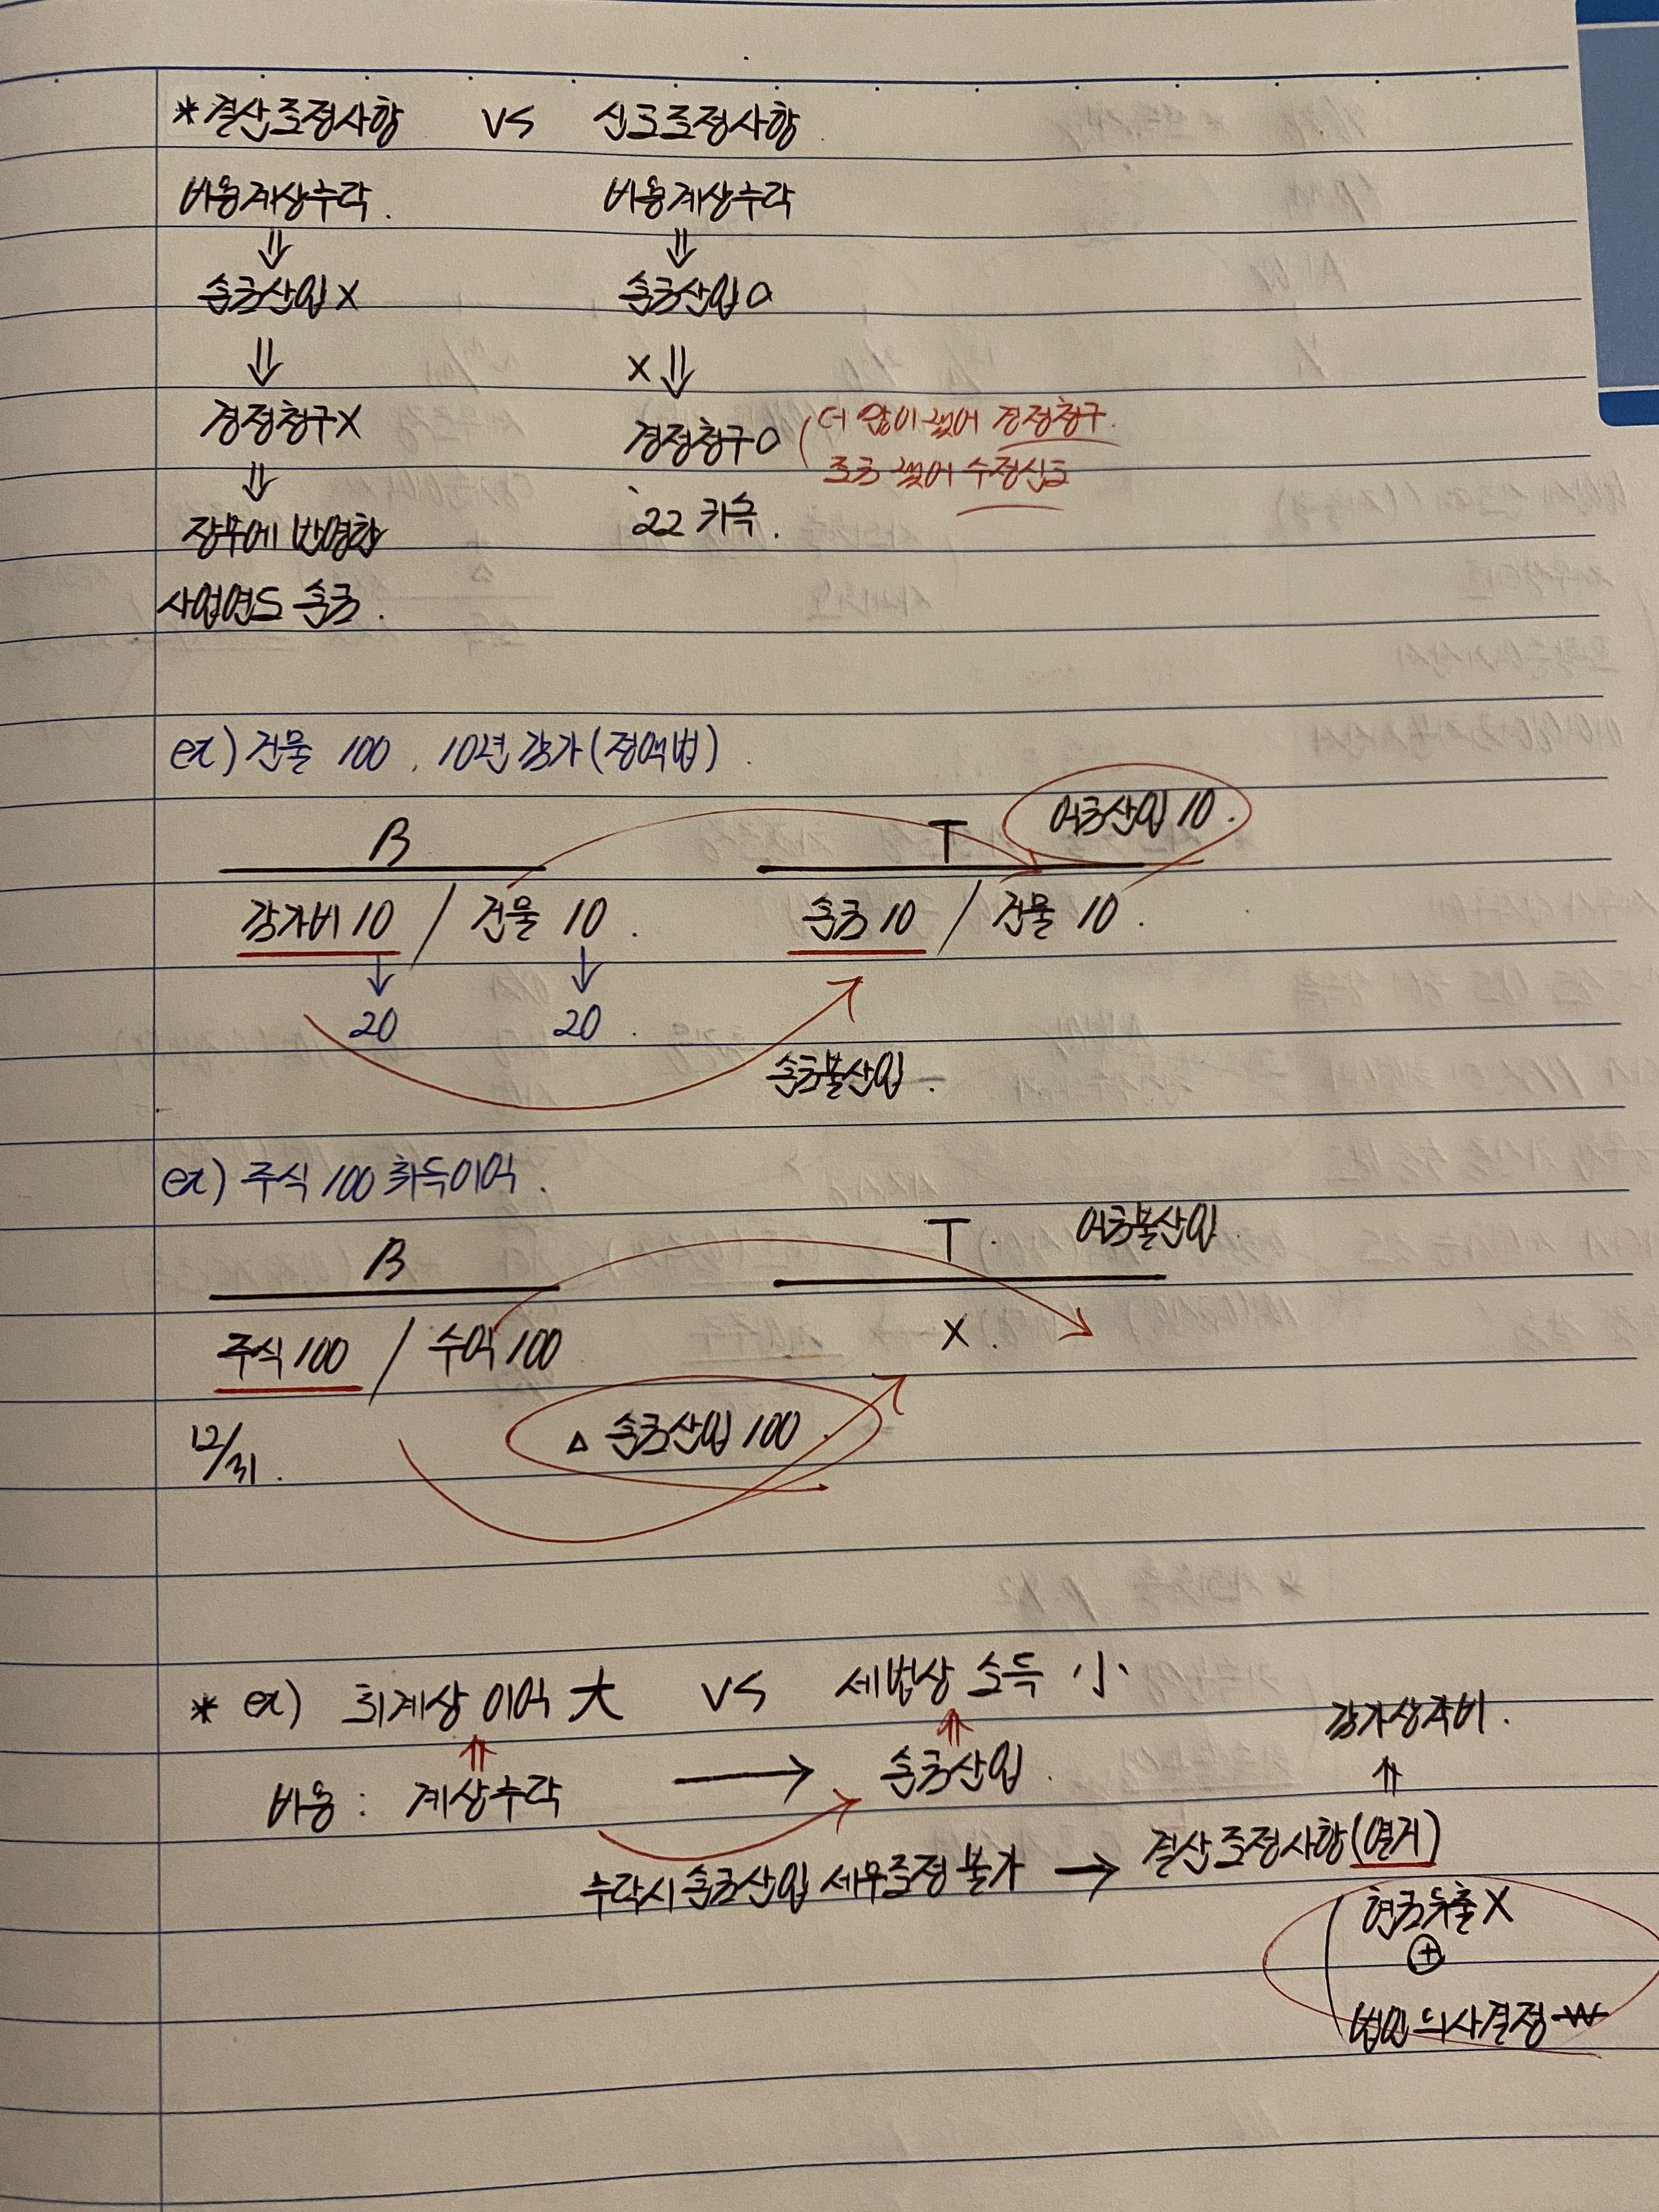 *결산조정사항 vs 신고조정사항
비용계상누락. 비용계상누락
⇓ ⇓
손금산입 X 손금산입 O
⇓ X ⇓
경정청구X 경정청구O (더 많이 냈어 경정청구.
조금 냈어 수정신고
⇓
장부에 반영한 '22 귀속.
사업연도 손금.
ex) 건물 100, 10년 감가(정액법).
B T 익금산입 10.
감가비 10 / 건물 10. 손금 10 / 건물 10.
↓ ↓
20 20.
손금불산입.
ex) 주식 100 취득이익.
B T. 익금불산입.
주식 100 / 수익 100 X.
12/31. △ 손금산입 100.
* ex) 회계상 이익 大 vs 세법상 소득 小
⇑ ⇑ 감가상각비.
비용 : 계상누락 → 손금산입. ⇑
누락시 손금산입 세무조정 불가 → 결산조정사항(열거)
현금유출 X
⊕
법인 의사결정